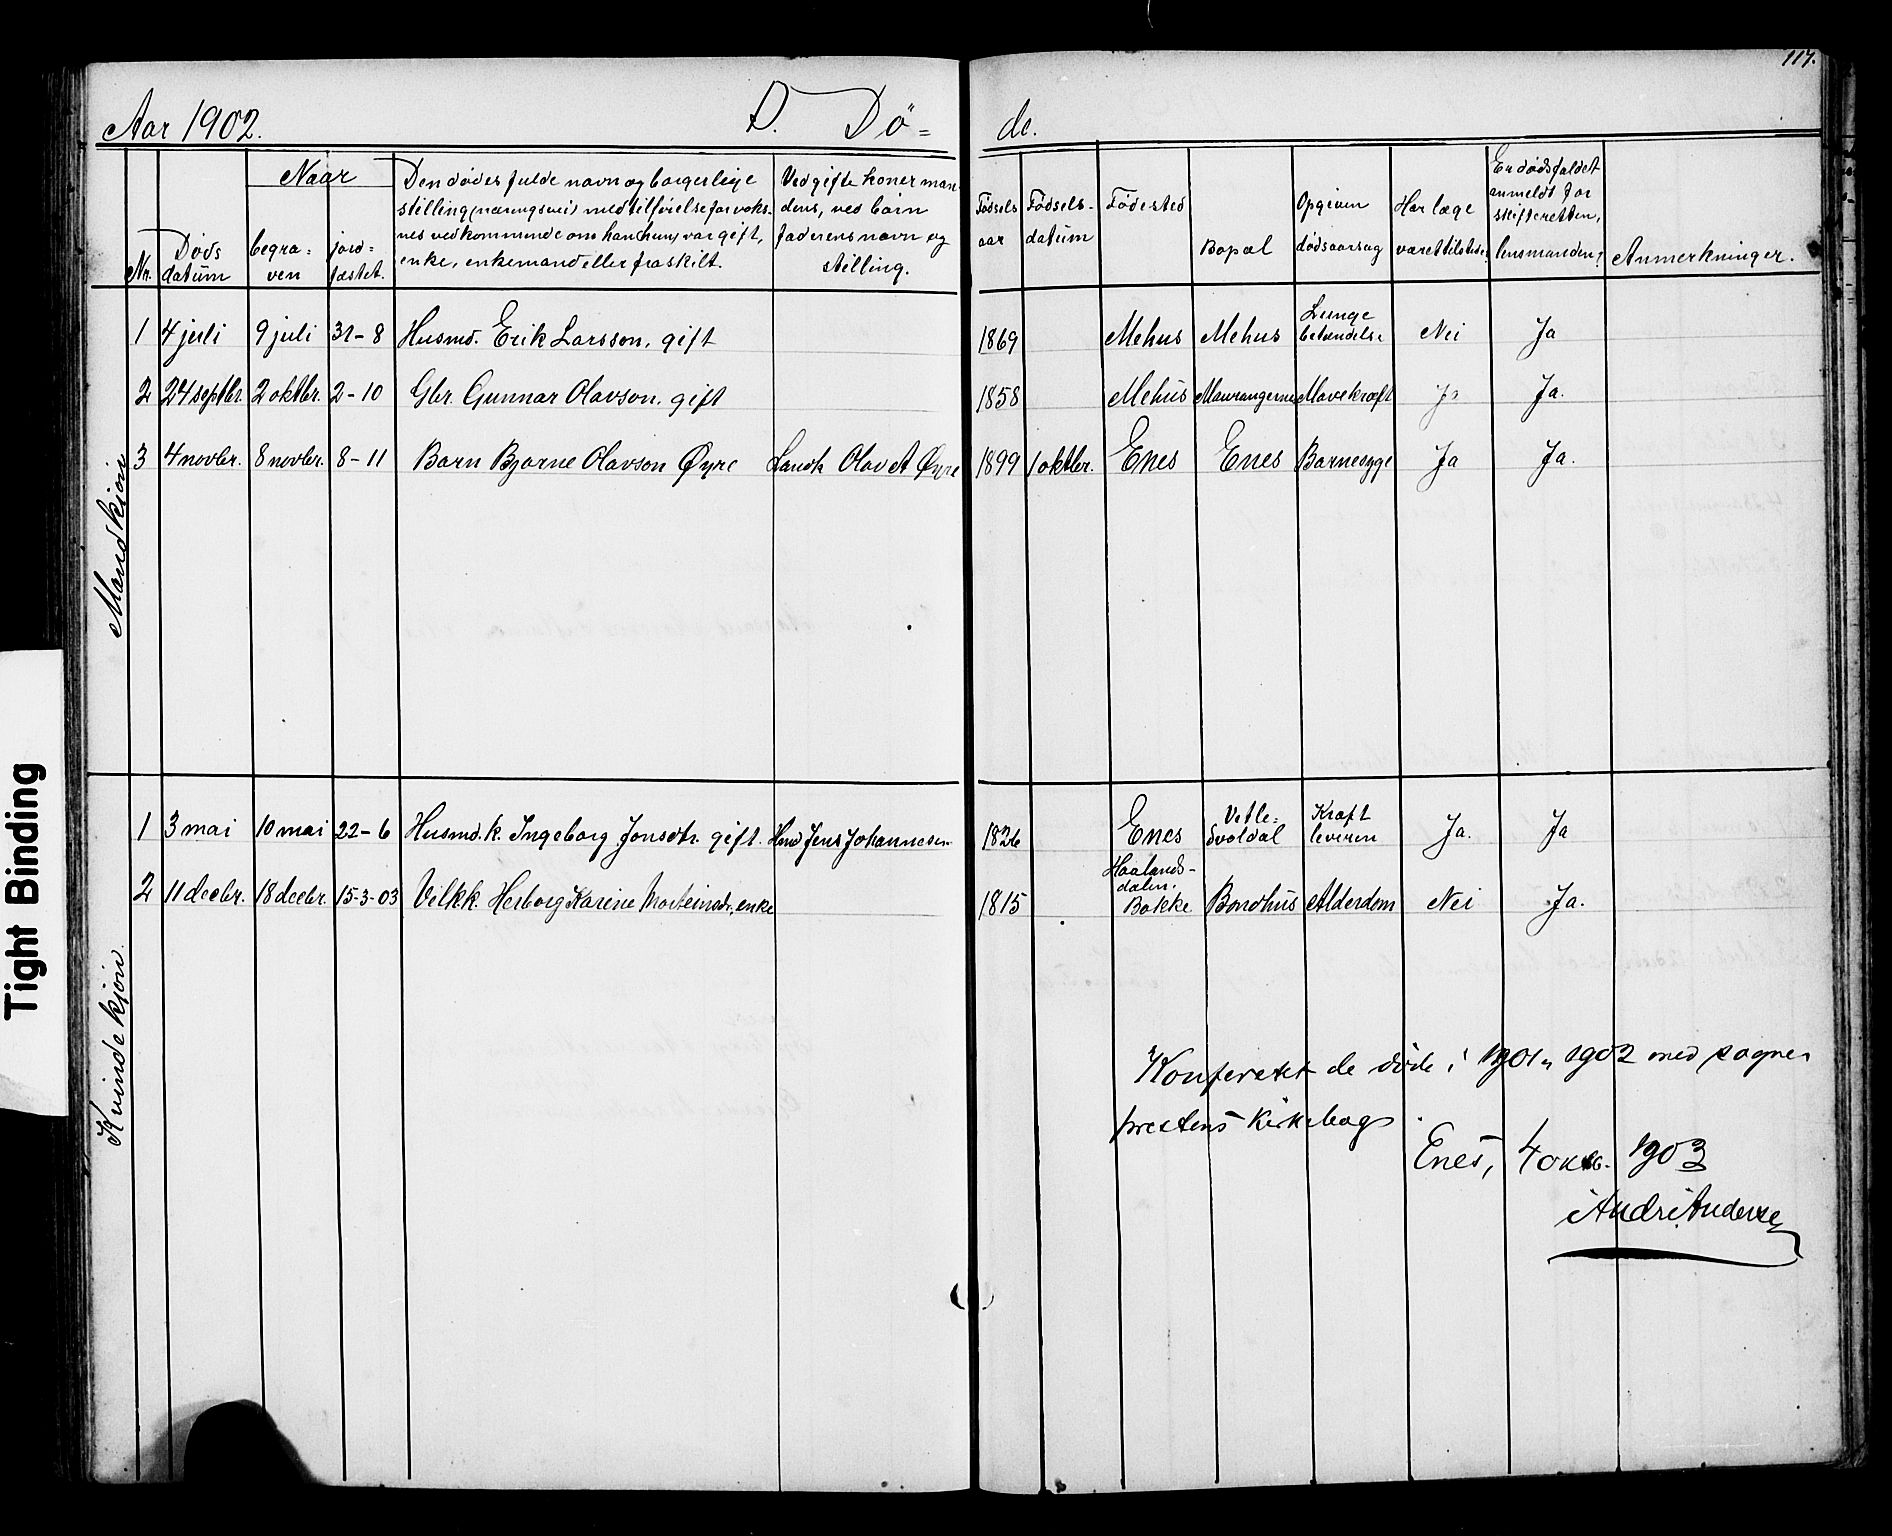 117.
Aar 1902. D. Dö= de.
Nr.
Naar
Döds datum
begra= ven
jord= fæstet.
Den dödes fulde navn og borgerlige
stilling (næringsvei) med tilföielse for voks-
nes vedkommende om han (hun) var gift,
enke, enkemand eller fraskilt.
Ved gifte koner man-
dens, ved barn
faderens navn og
stilling.
Födsels aar
Födsels- datum
Födested
Bopæl
Opgiven dödsaarsag
Har læge været tilstede?
Er dödsfaldet
anmeldt for
skifteretten,
lensmanden?
Anmerkninger.
Mandkjön
1 4 juli 9 juli 31-8 Husmd. Erik Larsson, gift 1869 Mehus Mehus Lunge betændelse Nei Ja
2 24 septbr. 2 oktbr. 2-10 Gbr. Gunnar Olavson, gift 1858 Mehus Maurangerne Mavekræft Ja Ja.
3 4 novbr. 8 novbr. 8-11 Barn Bjarne Olavson Øyre Landh. Olav A Øyre 1899 1 oktbr. Enes Enes Barnesyge Ja Ja.
Kvindekjön
1 3 mai 10 mai 22-6 Husmd.k. Ingeborg Jonsdtr. gift. Hmd Jens Johannesen 1826 Enes Vetle- Svoldal Kræft leveren Ja. Ja
2 11 decbr. 18 decbr. 15-3-03 Vilkk. Herborg Karine Morteinsdr., enke 1815 Haalands- dalen. Bakke Bondhus Alderdom Nei Ja.
Konferert de döde i 1901 og 1902 med sogne-
prestens kirkebog.
Enes, 4 oktb. 1903
Andr. Anderse
Tight Binding